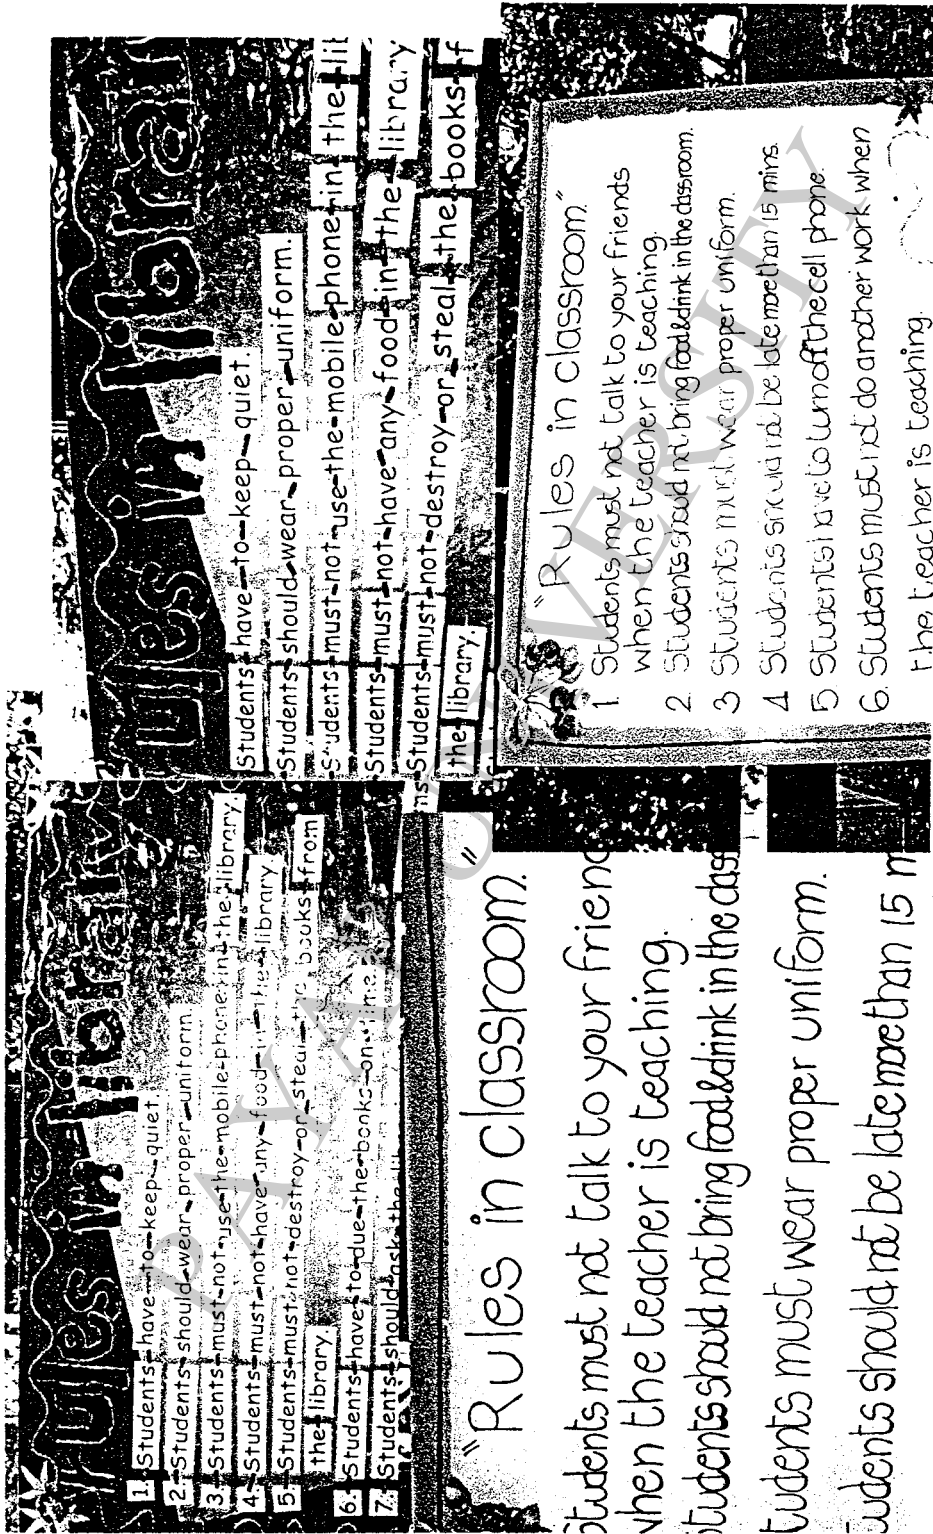 rules in library
1. Students have to keep quiet.
2. Students should wear proper uniform.
3. Students must not use the mobile phone in the library.
4. Students must not have any food in the library
5. Students must not destroy or steal the books from
the library.
6. Students have to due the books on time.
7. Students should ask the lib
rules in library
Students have to keep quiet.
Students should wear proper uniform.
Students must not use the mobile phone in the lib
Students must not have any food in the library
Students must not destroy or steal the books f
the library.
"Rules in classroom."
Students must not talk to your friend
when the teacher is teaching.
Students should not bring food & drink in the class
Students must wear proper uniform.
Students should not be late more than 15 m
"Rules in classroom"
1. Students must not talk to your friends
when the teacher is teaching.
2 Students should not bring food & drink in the classroom.
3 Students must wear proper uniform.
4 Students should not be late more than 15 mins.
5 Students have to turn off the cell phone.
6. Students must not do another work when
the teacher is teaching.
PAYAP UNIVERSITY